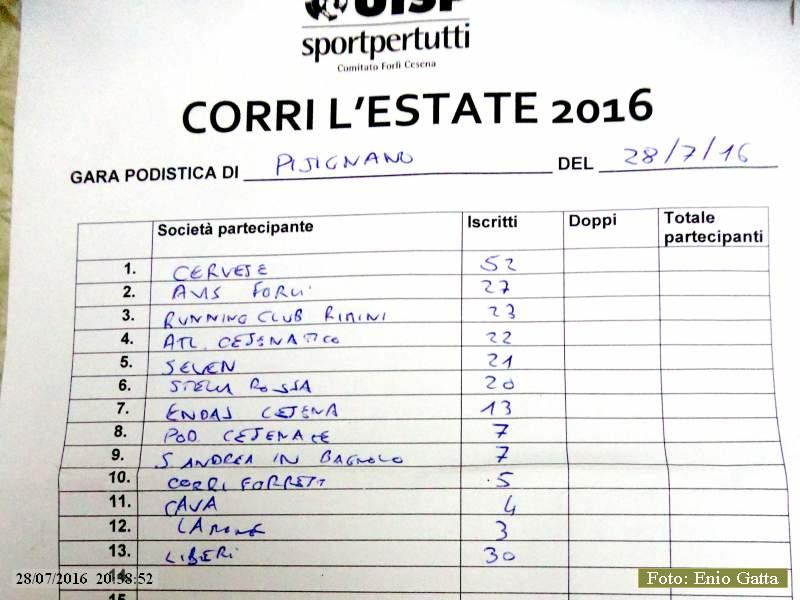 UISP
sportpertutti
Comitato Forlì Cesena
CORRI L'ESTATE 2016
GARA PODISTICA DI PISIGNANO DEL 28/7/16
Società partecipante Iscritti Doppi Totale partecipanti
1. CERVESE 52
2. AVIS FORLI' 27
3. RUNNING CLUB RIMINI 23
4. ATL CESENATICO 22
5. SEVEN 21
6. STELLA ROSSA 20
7. ENDAS CESENA 13
8. POD. CESENATE 7
9. S. ANDREA IN BAGNOLO 7
10. CORRI FORREST 5
11. CAVA 4
12. LAMONE 3
13. LIBERI 30
14.
15.
28/07/2016 20:58:52
Foto: Enio Gatta